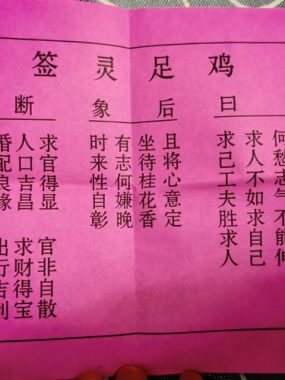 鸡足灵签
曰
何愁志气不能
求人不如求自己
求己工夫胜求人
后象
且将心意定
坐待桂花香
有志何嫌晚
时来性自彰
断
求官得显 官非自散
人口吉昌 求财得宝
婚配良缘 出行吉利